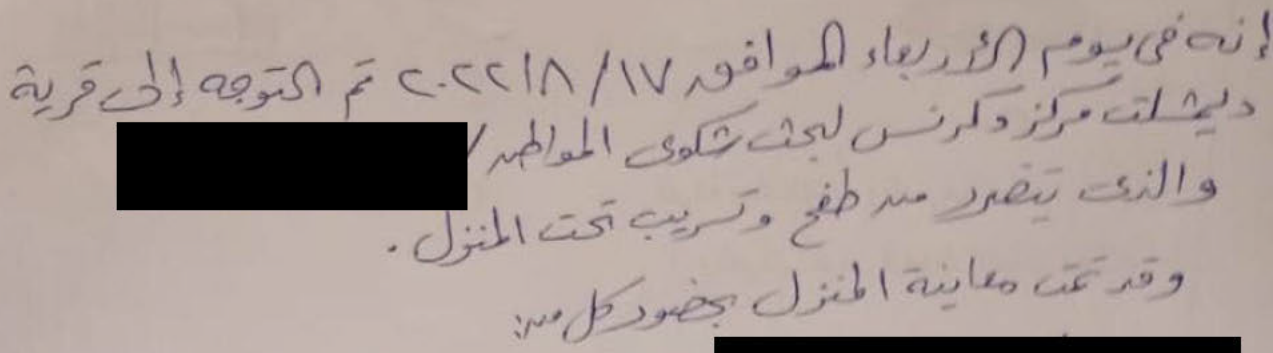 إنه فى يوم الأربعاء الموافق ١٧/٨/٢٠٢٢ تم التوجه إلى قرية
ديمشلت مركز دكرنس لبحث شكوى المواطن/
والذى يتضرر من طفح وتسريب تحت المنزل.
وقد تمت معاينة المنزل بحضور كل من: